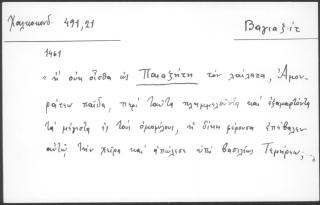 Χαλκοκονδ. 491,21
Βαγιαζήτ
1461
" ἢ οὐκ οἶσθα ὡς Παιαζήτη τὸν λαίλαπα, Ἀμου-
ράτεω παῖδα, περὶ ταῦτα πλημμελοῦντα καὶ ἐξαμαρτόντα
τὰ μέγιστα ἐς τοὺς ὁμοφύλους, ἡ δίκη μέτουσα ἐπέβαλεν
αὐτῷ τὴν χεῖρα καὶ ἀπώλεσε ὑπὸ βασιλέως Τεμήρεω,